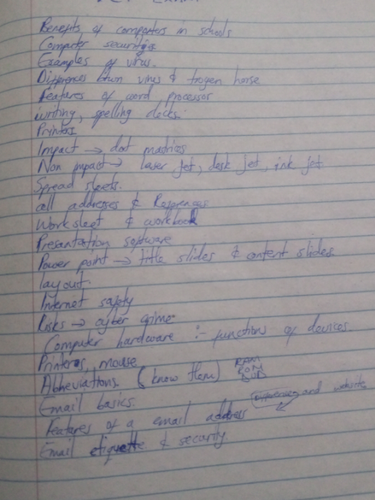 Benefits of computers in schools
Computer securities
Examples of virus.
Differences btwn virus & trogen horse
Features of word processor
writing, spelling checks.
Printers
Impact → dot matrics
Non impact → laser jet, desk jet, ink jet
Spread sheets.
cell addresses &
Work sheet & workbook
Presentation software
Power point → title slides & content slides
layout
Internet safety
Risks → cyber crime
Computer hardware :- functions of devices.
Printers mouse
Abbreviations (know them) RAM
ROM
Email basics and website
Features of a email address
Email etiquette & security